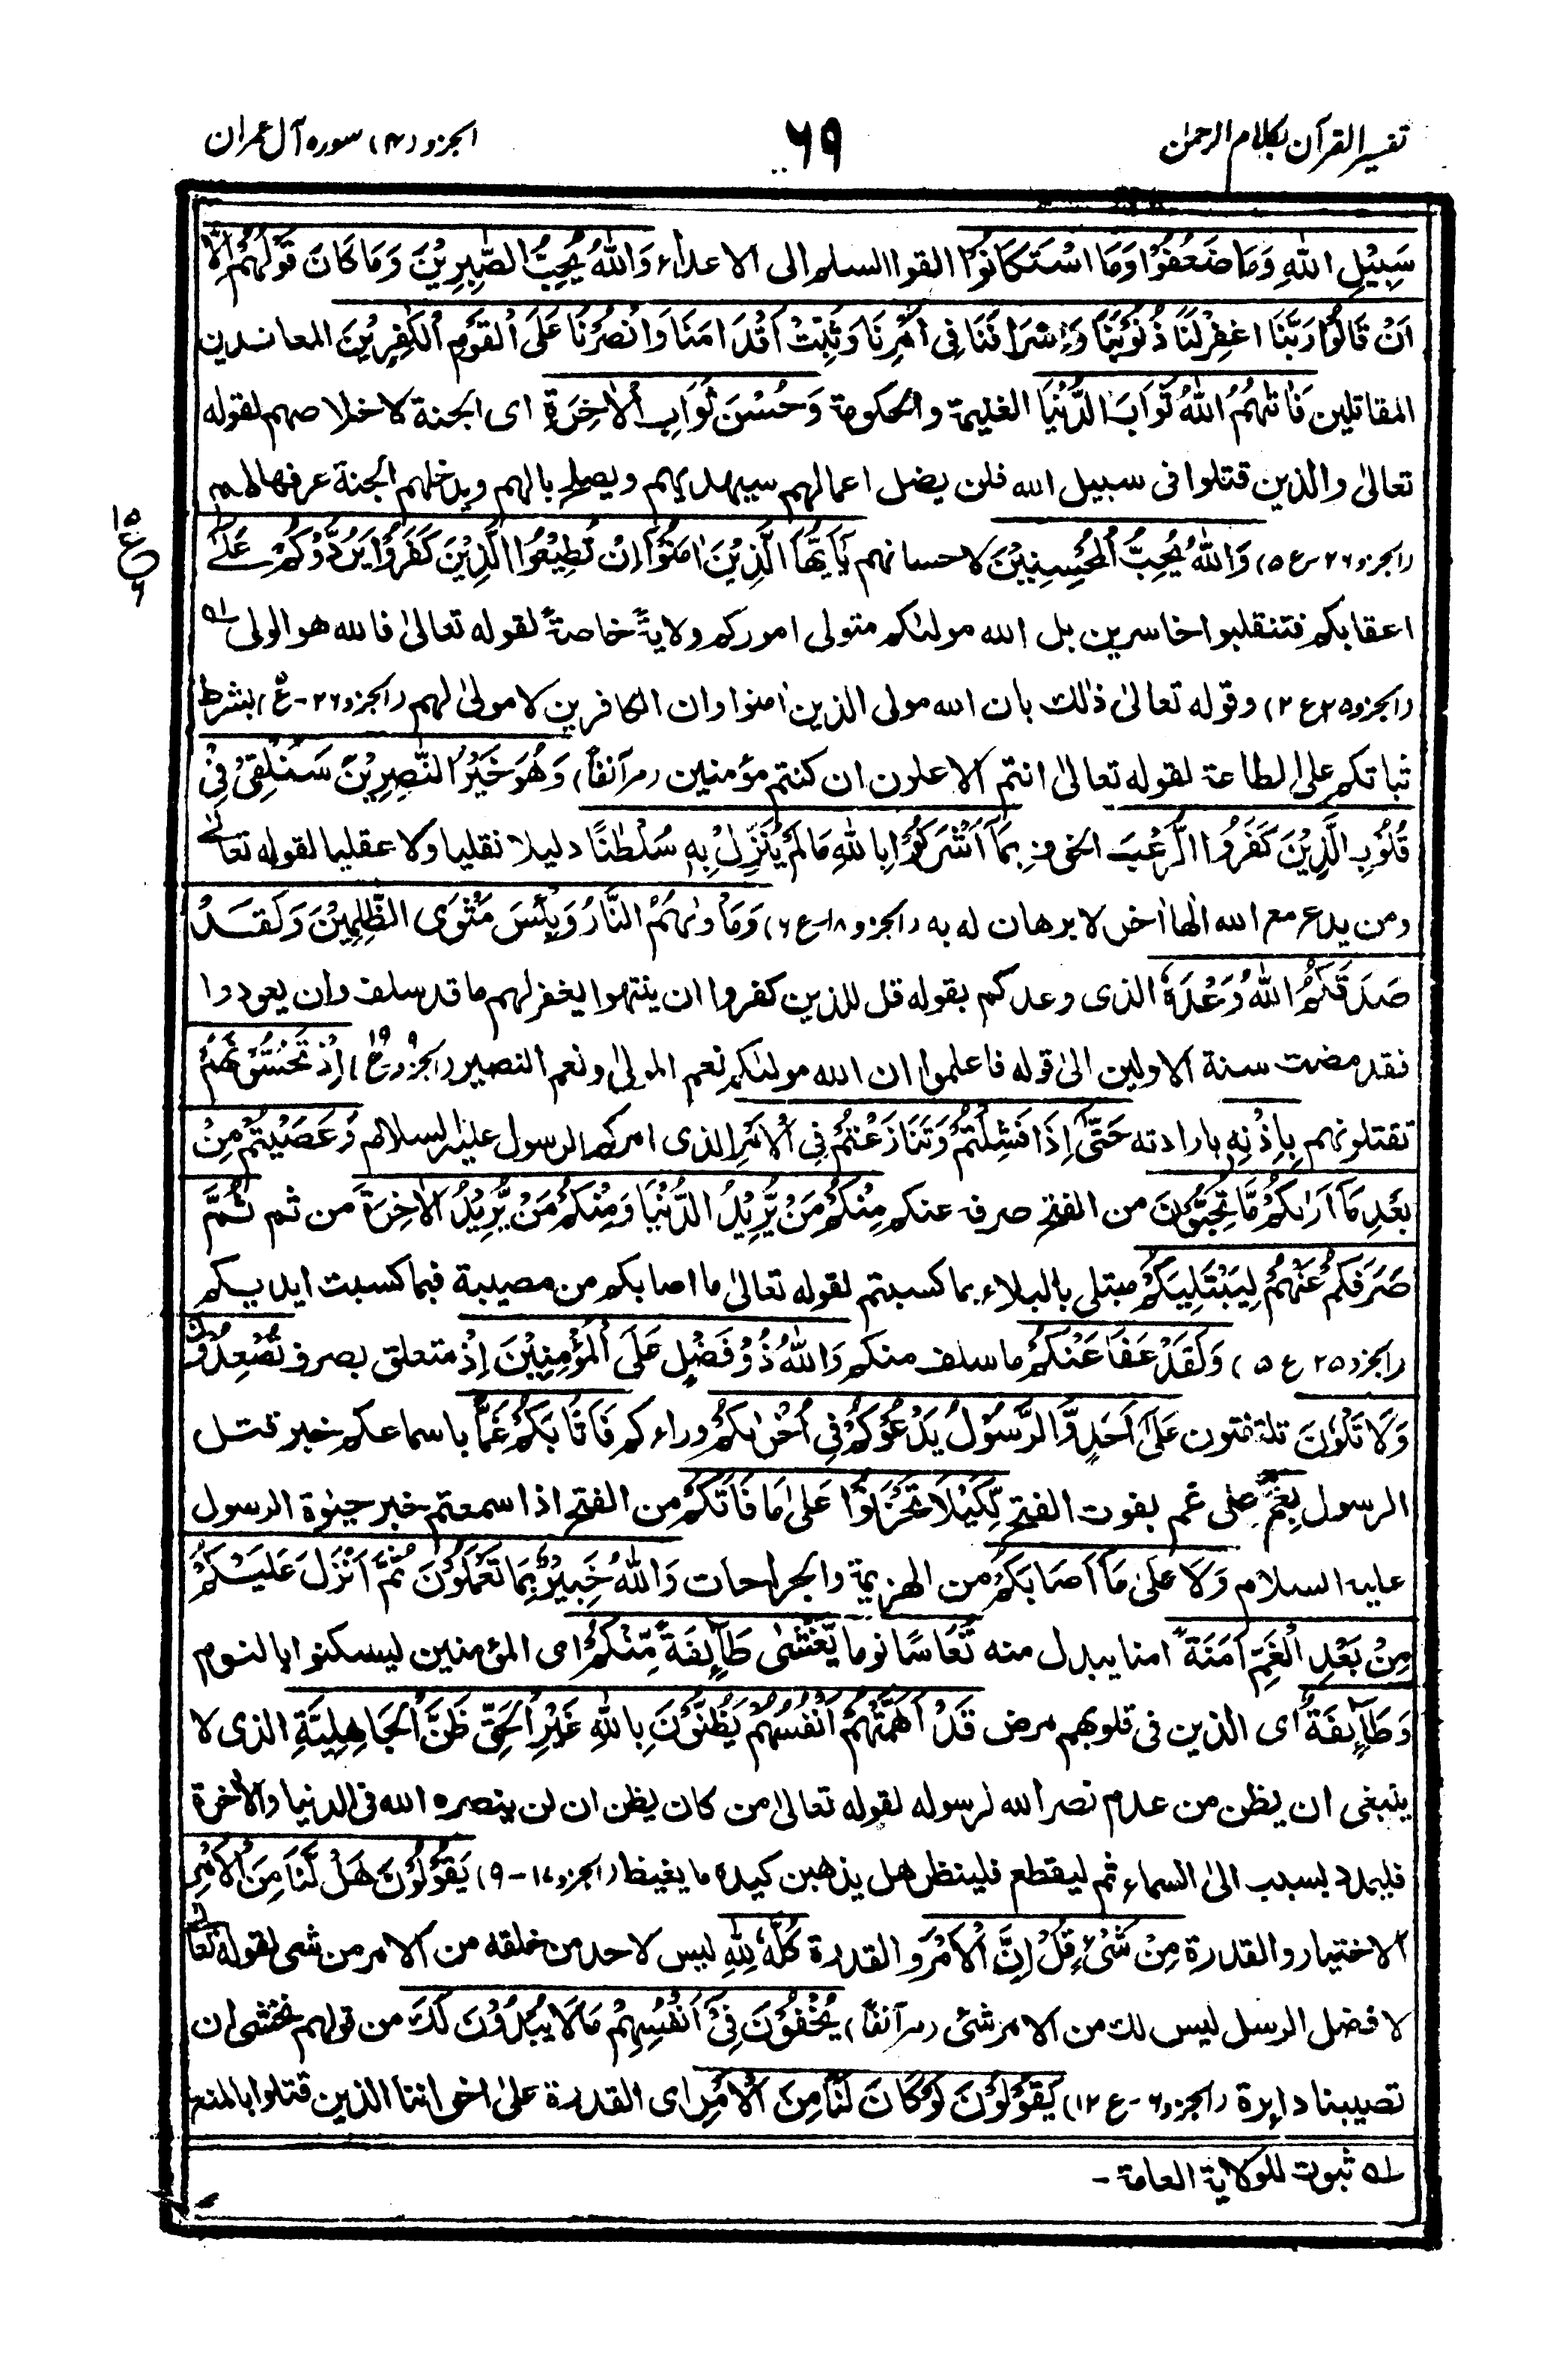 تفسیر القرآن بکلام الرحمن
۶۹
الجزو (۴) سورہ آل عمران
سَبِيْلِ اللّٰهِ وَمَا ضَعُفُوْا وَمَا اسْتَكَانُوْا القوا السلم الى الاعداء وَاللّٰهُ يُحِبُّ الصّٰبِرِيْنَ وَمَا كَانَ قَوْلَهُمْ اِلَّا
اَنْ قَالُوْا رَبَّنَا اغْفِرْلَنَا ذُنُوْبَنَا وَاِسْرَافَنَا فِى اَمْرِنَا وَثَبِّتْ اَقْدَامَنَا وَانْصُرْنَا عَلَى الْقَوْمِ الْكٰفِرِيْنَ المعاندين
المقاتلين فَاٰتٰىهُمُ اللّٰهُ ثَوَابَ الدُّنْيَا الغنيمة والحكومة وَحُسْنَ ثَوَابِ الْاٰخِرَةِ اى الجنة لاخلاصهم لقوله
تعالىٰ والذين قتلوا فى سبيل الله فلن يضل اعمالهم سيهديهم ويصلح بالهم ويدخلهم الجنة عرفها لهم
(الجزو ۲۶-ع ۵) وَاللّٰهُ يُحِبُّ الْمُحْسِنِيْنَ لاحسانهم يٰٓاَيُّهَا الَّذِيْنَ اٰمَنُوْٓا اِنْ تُطِيْعُوا الَّذِيْنَ كَفَرُوْا يَرُدُّوْكُمْ عَلٰٓى
۱۵ ع ۶
اعقابكم فتنقلبوا خاسرين بل الله مولىٰكم متولى اموركم ولايةً خاصةً لقوله تعالىٰ فالله هو الولى ؎۱
(الجزو ۲۵ ع ۲) وقوله تعالىٰ ذٰلك بان الله مولى الذين اٰمنوا وان الكافرين لا مولىٰ لهم (الجزو ۲۶-ع ۵) بشرط
ثباتكم على الطاعة لقوله تعالىٰ انتم الاعلون ان كنتم مؤمنين (مر آنفا) وَهُوَ خَيْرُ النّٰصِرِيْنَ سَنُلْقِىْ فِىْ
قُلُوْبِ الَّذِيْنَ كَفَرُوا الرُّعْبَ الخوف بِمَآ اَشْرَكُوْا بِاللّٰهِ مَا لَمْ يُنَزِّلْ بِهٖ سُلْطٰنًا دليلا نقليا ولا عقليا لقوله تعالىٰ
ومن يدع مع الله الٰها اٰخر لا برهان له به (الجزو ۱۸-ع ۶) وَمَاْوٰىهُمُ النَّارُ وَبِئْسَ مَثْوَى الظّٰلِمِيْنَ وَلَقَدْ
صَدَقَكُمُ اللّٰهُ وَعْدَهٗ الذى وعدكم بقوله قل للذين كفروا ان ينتهوا يغفر لهم ما قد سلف وان يعودوا
فقد مضت سنة الاولين الىٰ قوله فاعلموا ان الله مولىٰكم نعم المولىٰ ونعم النصير (الجزو ۹ ع ۱۹) اِذْ تَحُسُّوْنَهُمْ
تقتلونهم بِاِذْنِهٖ بارادته حَتّٰٓى اِذَا فَشِلْتُمْ وَتَنَازَعْتُمْ فِى الْاَمْرِ الذى امركم الرسول عليه السلام وَعَصَيْتُمْ مِنْ
بَعْدِ مَآ اَرٰىكُمْ مَّا تُحِبُّوْنَ من الفتح صرف عنكم مِنْكُمْ مَنْ يُّرِيْدُ الدُّنْيَا وَمِنْكُمْ مَنْ يُّرِيْدُ الْاٰخِرَةَ من ثم ثُمَّ
صَرَفَكُمْ عَنْهُمْ لِيَبْتَلِيَكُمْ مبتلى بالبلاء بما كسبتم لقوله تعالىٰ ما اصابكم من مصيبة فبما كسبت ايديكم
(الجزو ۲۵ ع ۵) وَلَقَدْ عَفَا عَنْكُمْ ما سلف منكم وَاللّٰهُ ذُوْ فَضْلٍ عَلَى الْمُؤْمِنِيْنَ اِذْ متعلق بصرف تُصْعِدُوْنَ
وَلَا تَلْوٗنَ تلتفتون عَلٰٓى اَحَدٍ وَّالرَّسُوْلُ يَدْعُوْكُمْ فِىْٓ اُخْرٰىكُمْ وراءكم فَاَثَابَكُمْ غَمًّا باسماعكم خبر قتل
الرسول بِغَمٍّ على غم بفوت الفتح لِّكَيْلَا تَحْزَنُوْا عَلٰى مَا فَاتَكُمْ من الفتح اذا سمعتم خبر حيوٰة الرسول
عليه السلام وَلَا عَلىٰ مَآ اَصَابَكُمْ من الهزيمة والجراحات وَاللّٰهُ خَبِيْرٌۢ بِمَا تَعْمَلُوْنَ ثُمَّ اَنْزَلَ عَلَيْكُمْ
مِنْ بَعْدِ الْغَمِّ اَمَنَةً امنا يبدل منه نُّعَاسًا نوما يَّغْشٰى طَآئِفَةً مِّنْكُمْ اى المؤمنين ليسكنوا بالنوم
وَطَآئِفَةٌ اى الذين فى قلوبهم مرض قَدْ اَهَمَّتْهُمْ اَنْفُسُهُمْ يَظُنُّوْنَ بِاللّٰهِ غَيْرَ الْحَقِّ ظَنَّ الْجَاهِلِيَّةِ الذى لا
ينبغى ان يظن من عدم نصر الله لرسوله لقوله تعالىٰ من كان يظن ان لن ينصره الله فى الدنيا والاٰخرة
فليمدد بسبب الىٰ السماء ثم ليقطع فلينظر هل يذهبن كيده ما يغيظ (الجزو ۱۷-۹) يَقُوْلُوْنَ هَلْ لَّنَا مِنَ الْاَمْرِ
الاختيار والقدرة مِنْ شَىْءٍ قُلْ اِنَّ الْاَمْرَ والقدرة كُلَّهٗ لِلّٰهِ ليس لاحد من خلقه من الامر من شى لقوله تعالىٰ
لافضل الرسل ليس لك من الامر شئ (مر آنفا) يُخْفُوْنَ فِىْٓ اَنْفُسِهِمْ مَا لَا يُبْدُوْنَ لَكَ من قولهم نخشى ان
تصيبنا دائرة (الجزو ۶-ع ۱۲) يَقُوْلُوْنَ لَوْ كَانَ لَنَا مِنَ الْاَمْرِ اى القدرة علىٰ اخواننا الذين قتلوا بالمنع
؎۱ ثبوت للولاية العامة -